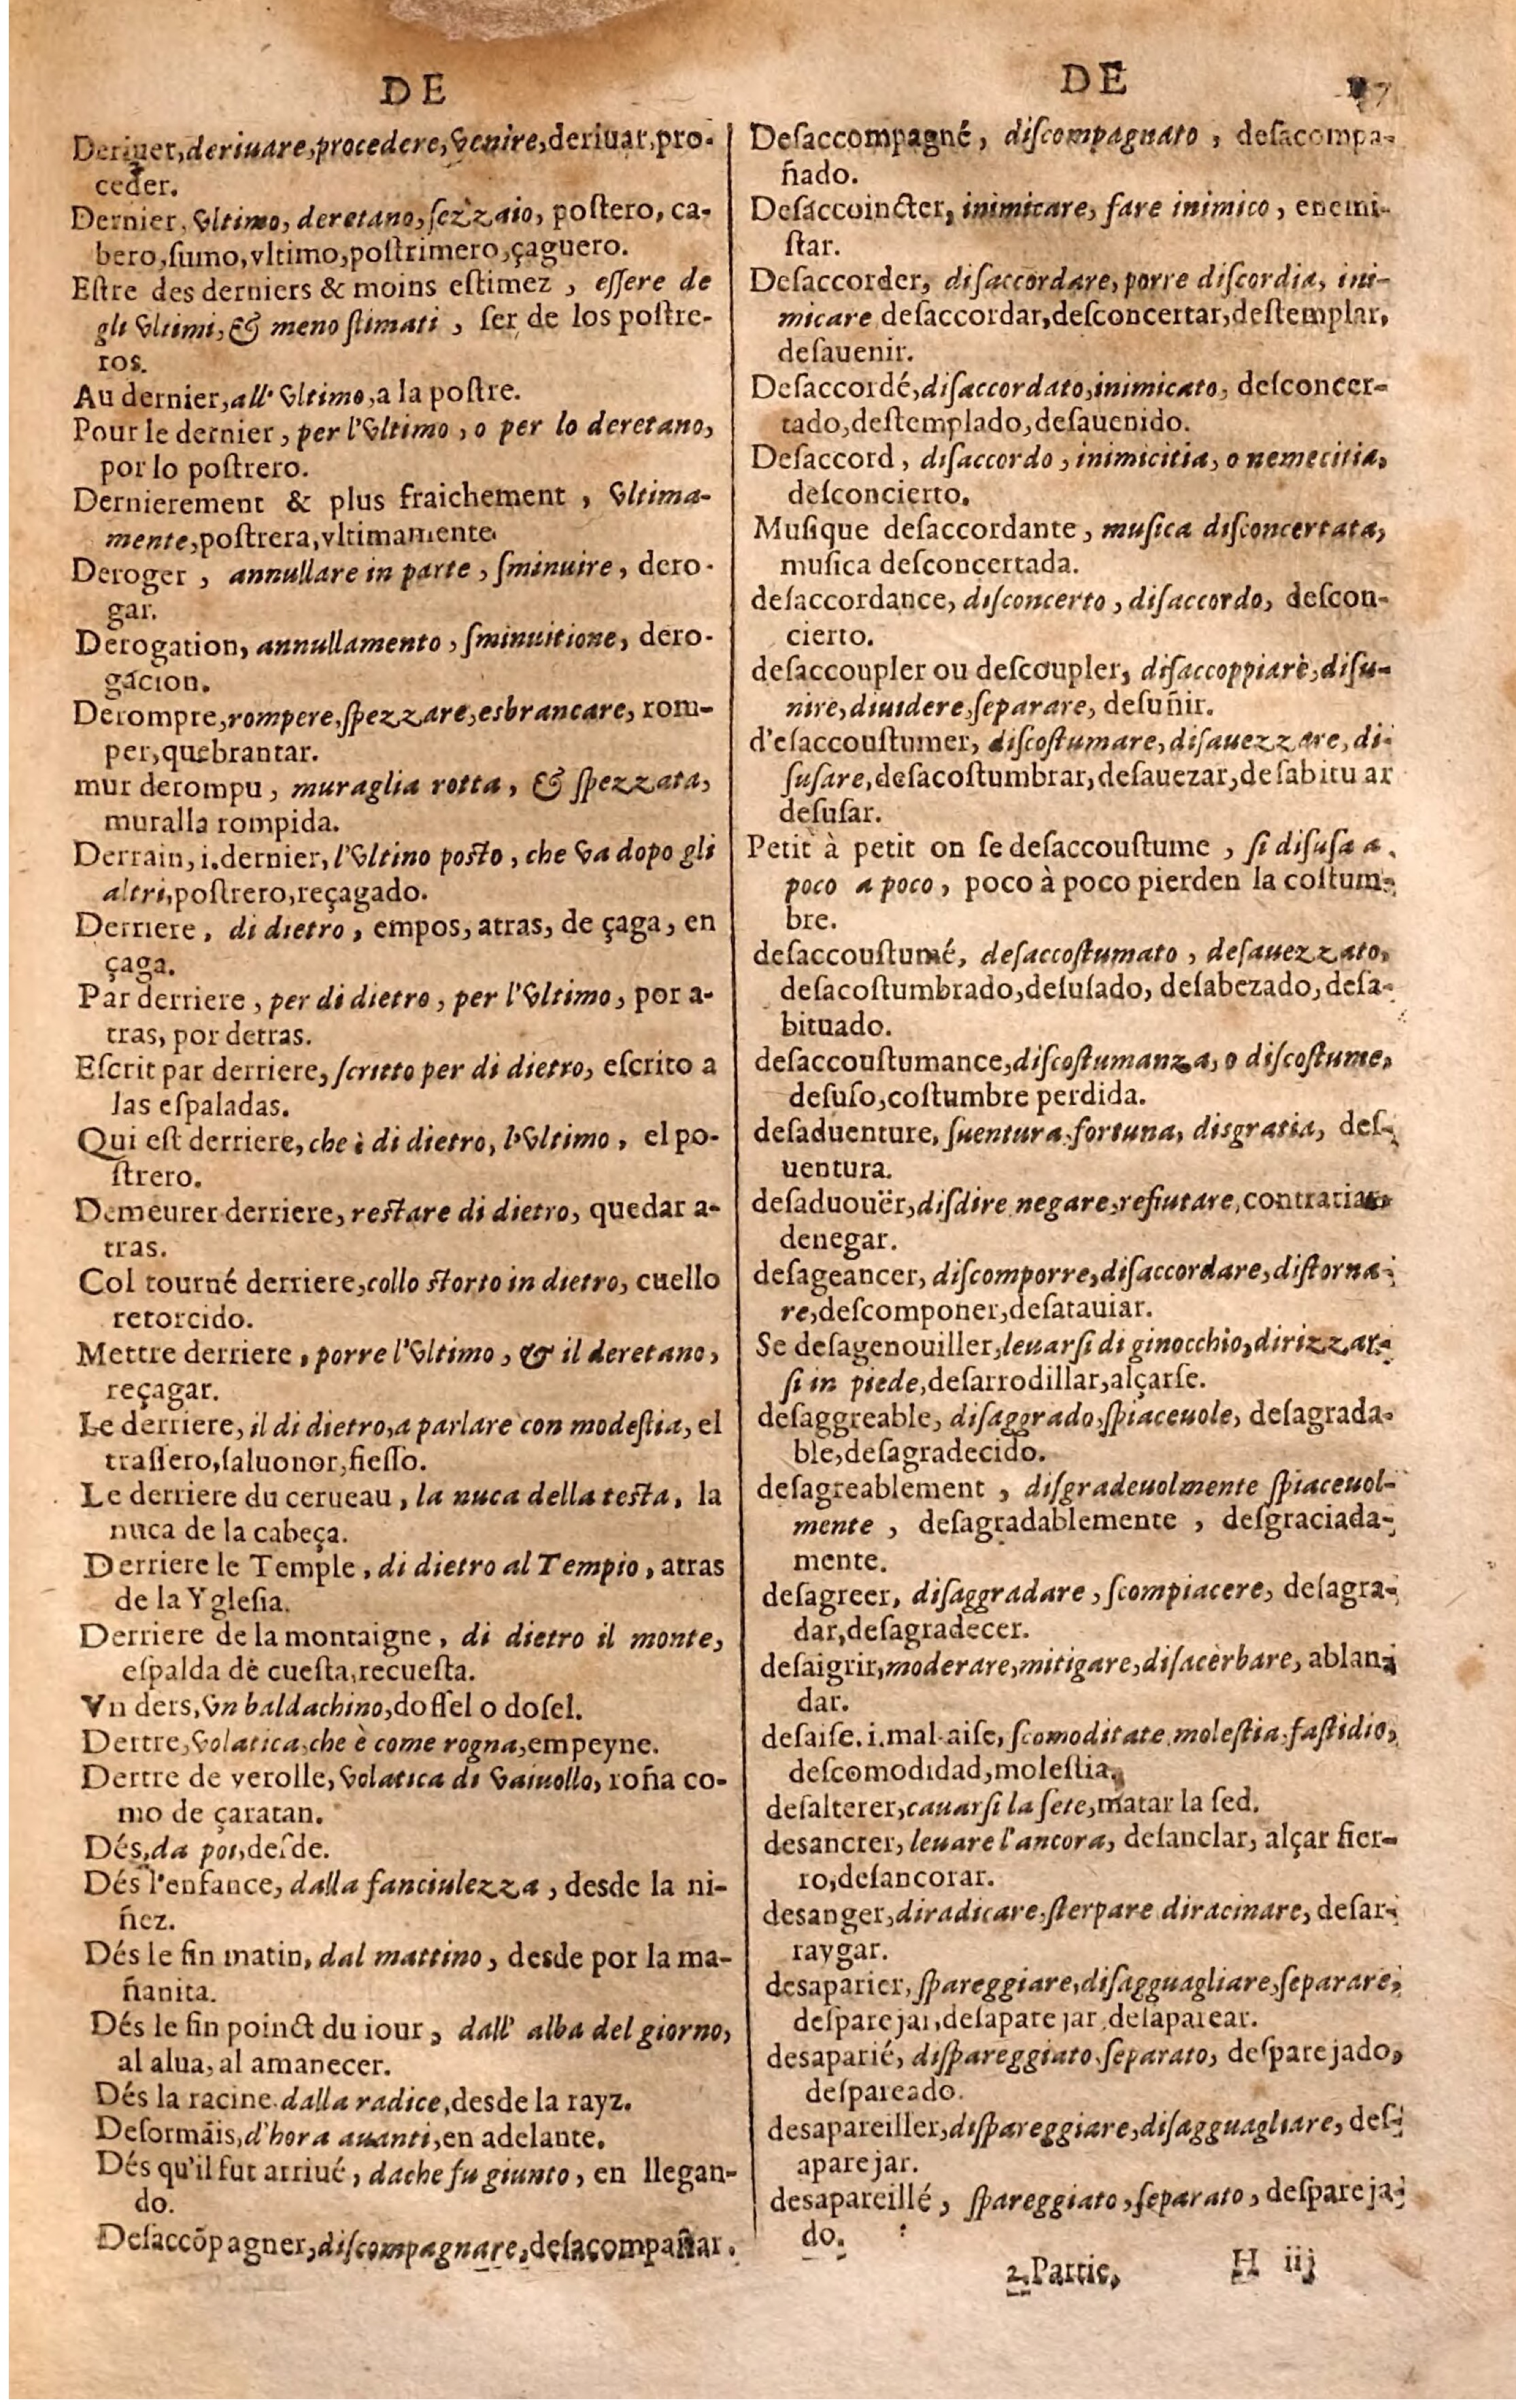 DE
Deriuer, deriuare, procedere, venire, deriuar, pro-
ceder.
Dernier, vltimo, deretano, ſezzaio, poſtero, ca-
bero, ſumo, vltimo, poſtrimero, çaguero.
Eſtre des derniers & moins eſtimez, eſſere de
gli vltimi, & meno ſtimati, ſer de los poſtre-
ros.
Au dernier, all' vltimo, a la poſtre.
Pour le dernier, per l'vltimo, o per lo deretano,
por lo poſtrero.
Dernierement & plus fraichement, vltima-
mente, poſtrera, vltimamente.
Deroger, annullare in parte, ſminuire, dero-
gar.
Derogation, annullamento, ſminuitione, dero-
gacion.
Derompre, rompere, ſpezzare, esbrancare, rom-
per, quebrantar.
mur derompu, muraglia rotta, & ſpezzata,
muralla rompida.
Derrain, i. dernier, l'vltino poſto, che va dopo gli
altri, poſtrero, reçagado.
Derriere, di dietro, empos, atras, de çaga, en
çaga.
Par derriere, per di dietro, per l'vltimo, por a-
tras, por detras.
Eſcrit par derriere, ſcritto per di dietro, eſcrito a
las eſpaladas.
Qui eſt derriere, che è di dietro, l'vltimo, el po-
ſtrero.
Demeurer derriere, reſtare di dietro, quedar a-
tras.
Col tourné derriere, collo ſtorto in dietro, cuello
retorcido.
Mettre derriere, porre l'vltimo, & il deretano,
reçagar.
Le derriere, il di dietro, a parlare con modeſtia, el
traſſero, ſaluonor, ſieſſo.
Le derriere du cerueau, la nuca della teſta, la
nuca de la cabeça.
Derriere le Temple, di dietro al Tempio, atras
de la Ygleſia.
Derriere de la montaigne, di dietro il monte,
eſpalda de cueſta, recueſta.
Vn ders, vn baldachino, doſſel o doſel.
Dertre, volatica, che è come rogna, empeyne.
Dertre de verolle, volatica di vaiuollo, roña co-
mo de çaratan.
Dés, da poi, deſde.
Dés l'enfance, dalla fanciulezza, desde la ni-
ñez.
Dés le fin matin, dal mattino, desde por la ma-
ñanita.
Dés le fin poinct du iour, dall' alba del giorno,
al alua, al amanecer.
Dés la racine. dalla radice, desde la rayz.
Deſormais, d'hora auanti, en adelante.
Dés qu'il fut arriué, dache fu giunto, en llegan-
do.
Deſaccõpagner, diſcompagnare, deſacompañar.
DE
Deſaccompagné, diſcompagnato, deſacompa-
ñado.
Deſaccoincter, inimicare, fare inimico, enemi-
ſtar.
Deſaccorder, diſaccordare, porre diſcordia, ini-
micare deſaccordar, deſconcertar, deſtemplar,
deſauenir.
Deſaccordé, diſaccordato, inimicato, deſconcer-
tado, deſtemplado, deſauenido.
Deſaccord, diſaccordo, inimicitia, o nemecitia,
deſconcierto.
Muſique deſaccordante, muſica diſconcertata,
muſica deſconcertada.
deſaccordance, diſconcerto, diſaccordo, deſcon-
cierto.
deſaccoupler ou deſcoupler, diſaccoppiare, diſu-
nire, diuidere, ſeparare, deſuñir.
d'eſaccouſtumer, diſcoſtumare, diſauezzare, di-
ſuſare, deſacoſtumbrar, deſauezar, deſabituar
deſuſar.
Petit à petit on ſe deſaccouſtume, ſi diſuſa a
poco a poco, poco à poco pierden la coſtum-
bre.
deſaccouſtumé, deſaccoſtumato, deſauezzato,
deſacoſtumbrado, deſuſado, deſabezado, deſa-
bituado.
deſaccouſtumance, diſcoſtumanza, o diſcoſtume,
deſuſo, coſtumbre perdida.
deſaduenture, ſuentura, fortuna, disgratia, deſ-
uentura.
deſaduouër, diſdire negare, refiutare, contrariar
denegar.
deſageancer, diſcomporre, diſaccordare, diſtorna-
re, deſcomponer, deſatauiar.
Se deſagenouiller, leuarſi di ginocchio, dirizzar-
ſi in piede, deſarrodillar, alçarſe.
deſaggreable, diſaggrado, ſpiaceuole, deſagrada-
ble, deſagradecido.
deſagreablement, diſgradeuolmente ſpiaceuol-
mente, deſagradablemente, deſgraciada-
mente.
deſagreer, diſaggradare, ſcompiacere, deſagra-
dar, deſagradecer.
deſaigrir, moderare, mitigare, diſacerbare, ablan-
dar.
deſaiſe. i. mal-aiſe, ſcomoditate, moleſtia, faſtidio,
deſcomodidad, moleſtia.
deſalterer, cauarſi la ſete, matar la ſed.
desancrer, leuare l'ancora, deſanclar, alçar fier-
ro, deſancorar.
desanger, diradicare, ſterpare diracinare, deſar-
raygar.
desaparier, ſpareggiare, diſagguagliare, ſeparare,
deſparejar, deſaparejar, deſaparear.
desaparié, diſpareggiato, ſeparato, deſparejado,
deſpareado.
desapareiller, diſpareggiare, diſagguagliare, deſ-
aparejar.
desapareillé, ſpareggiato, ſeparato, deſpareja-
do.
2. Partie, H iij